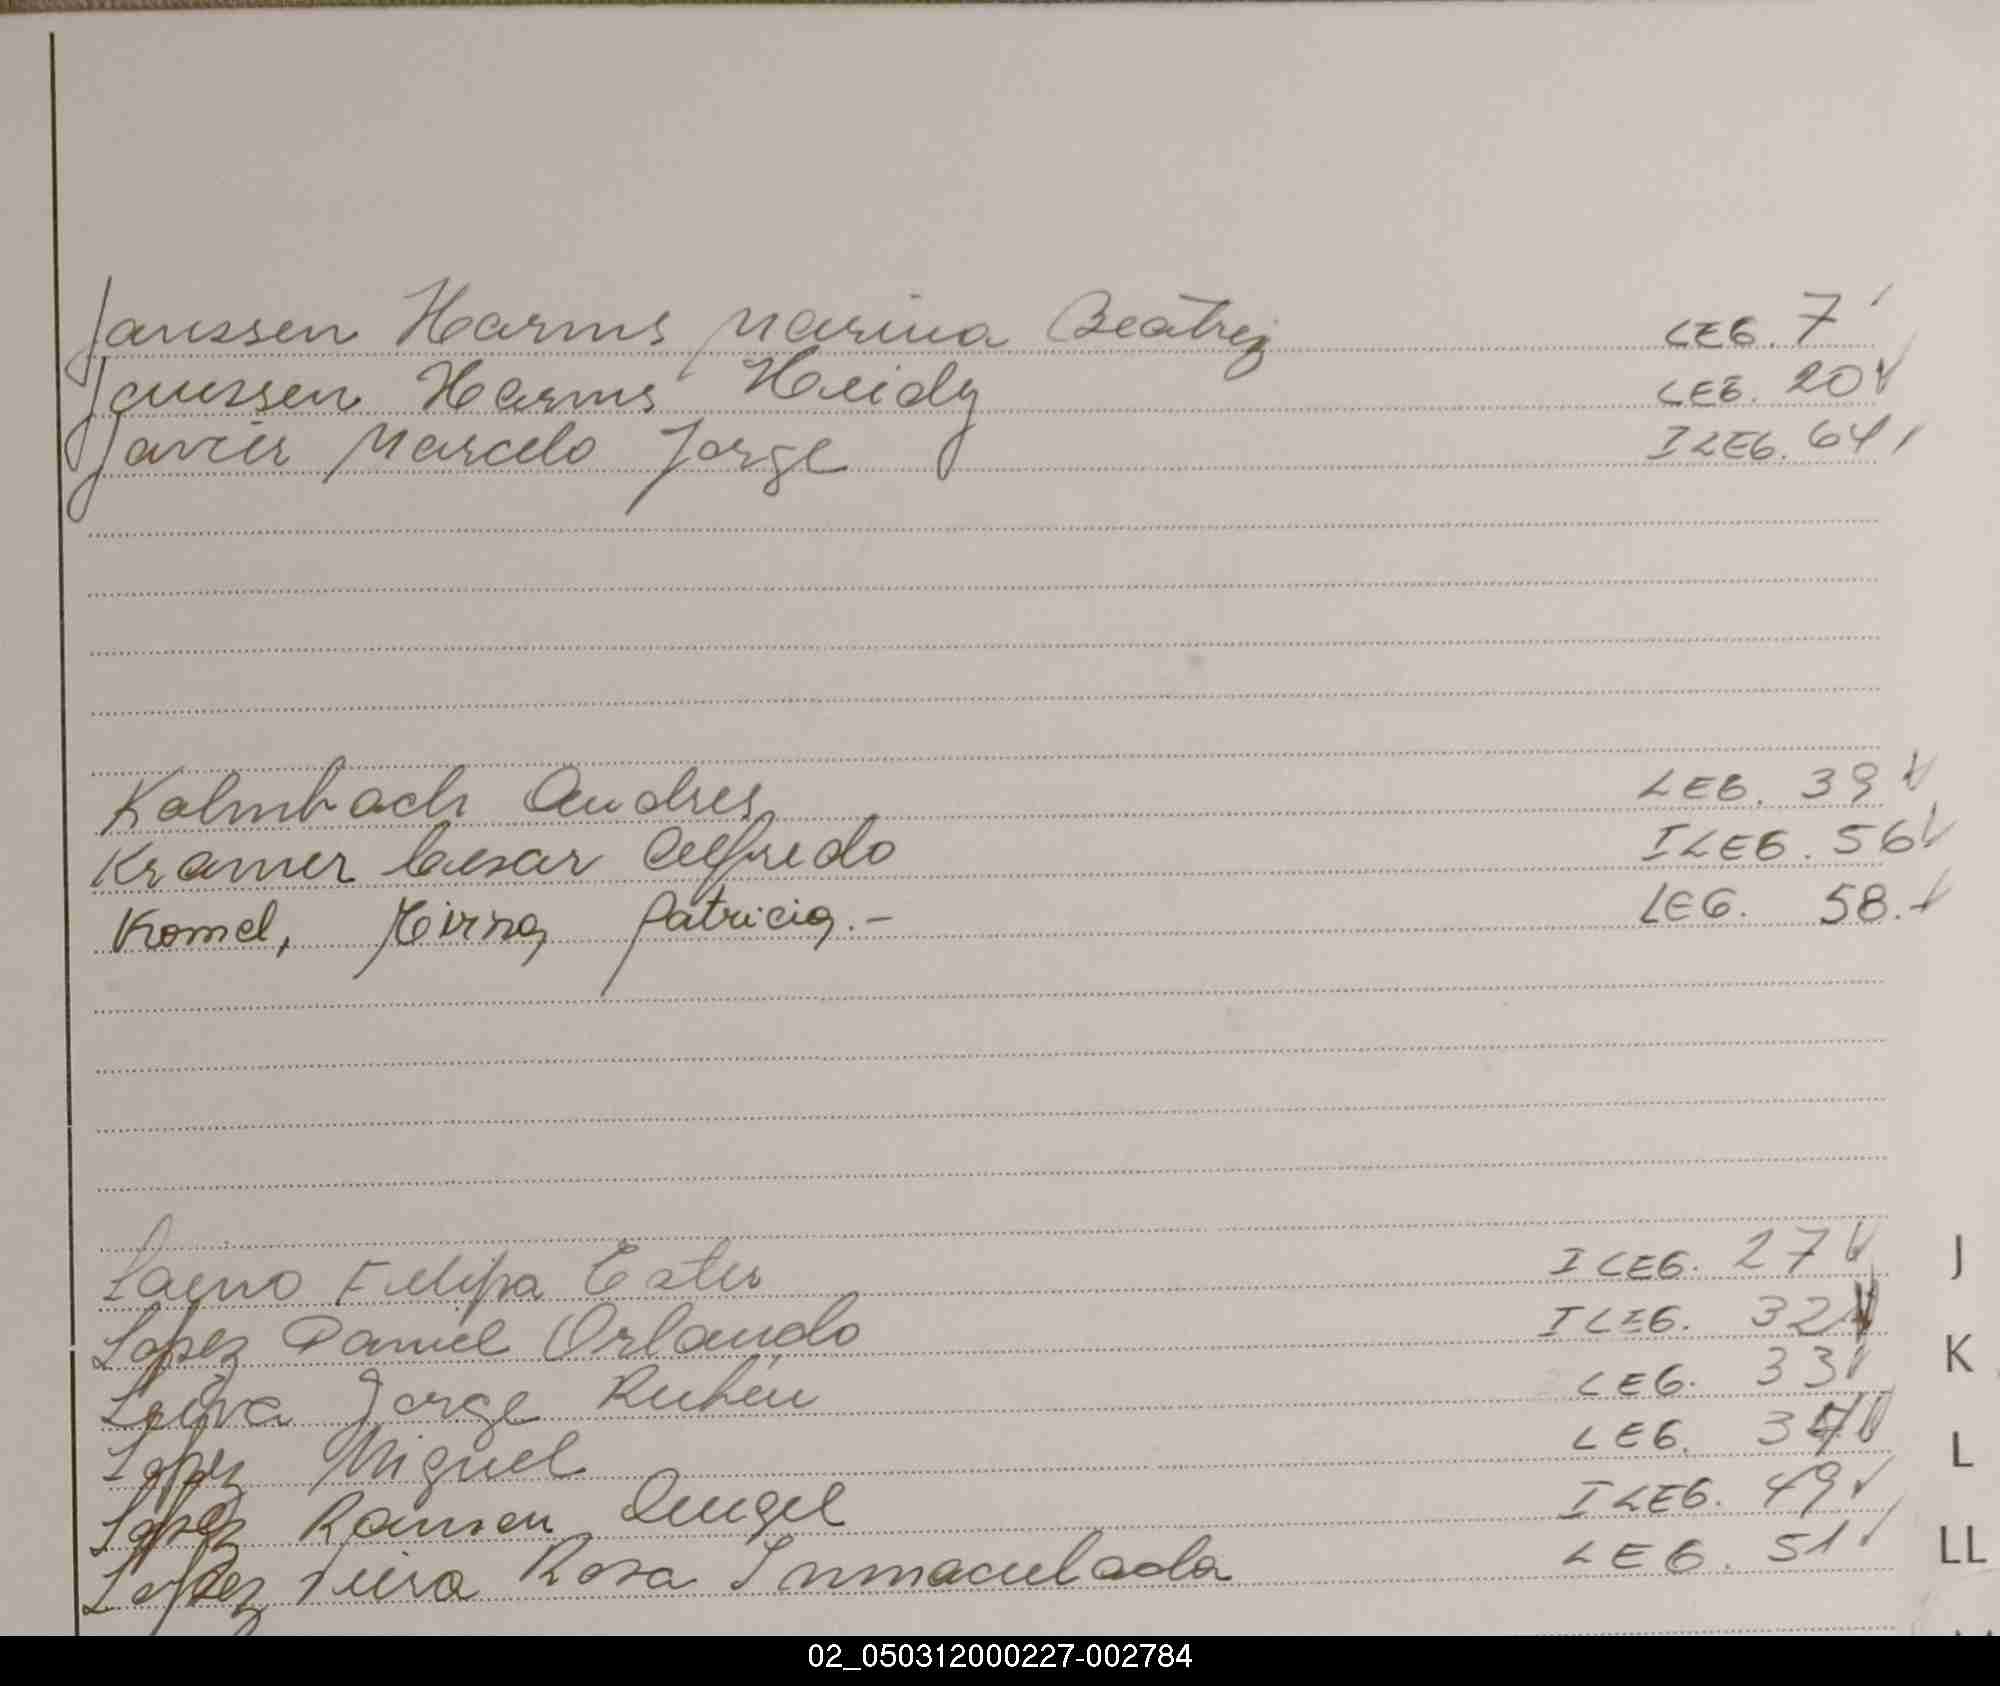 Janssen Harms Marina Beatriz LEG. 7
Janssen Harms Heidy LEG. 20
Javier Marcelo Jorge ILEG. 64
Kalmbach Andres LEG. 39
Kramer Cesar Alfredo ILEG. 56
Komel, Mirna Patricia.- LEG. 58.
Laino Felipa Ester ILEG. 27
Lopez Daniel Orlando ILEG. 32
Leiva Jorge Rubén LEG. 33
Lopez Miguel LEG.
Lopez Ramon Angel ILEG. 49
Lopez Rosa Inmaculada LEG. 51
J
K
L
LL
02_050312000227-002784